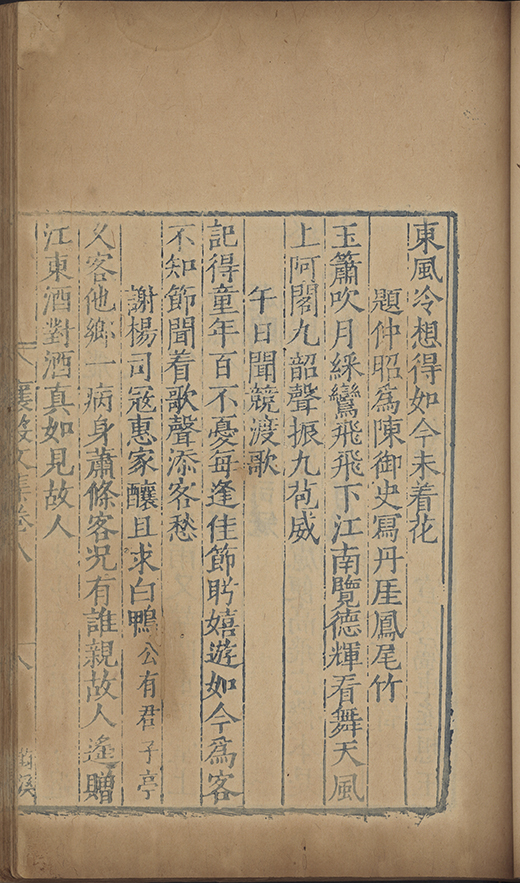 東風冷想得如今未着花
題仲昭為陳御史寫丹厓鳳尾竹
玉簫吹月綵鸞飛飛下江南覽德輝看舞天風
上阿閣九韶聲振九苞威
午日聞競渡歌
記得童年百不憂每逢佳節盼嬉遊如今為客
不知節聞着歌聲添客愁
謝楊司冦惠家釀且求白鴨公有君子亭
乆客他鄉一病身蕭條客况有誰親故人遙贈
江東酒對酒真如見故人
襄毅文集卷八
八